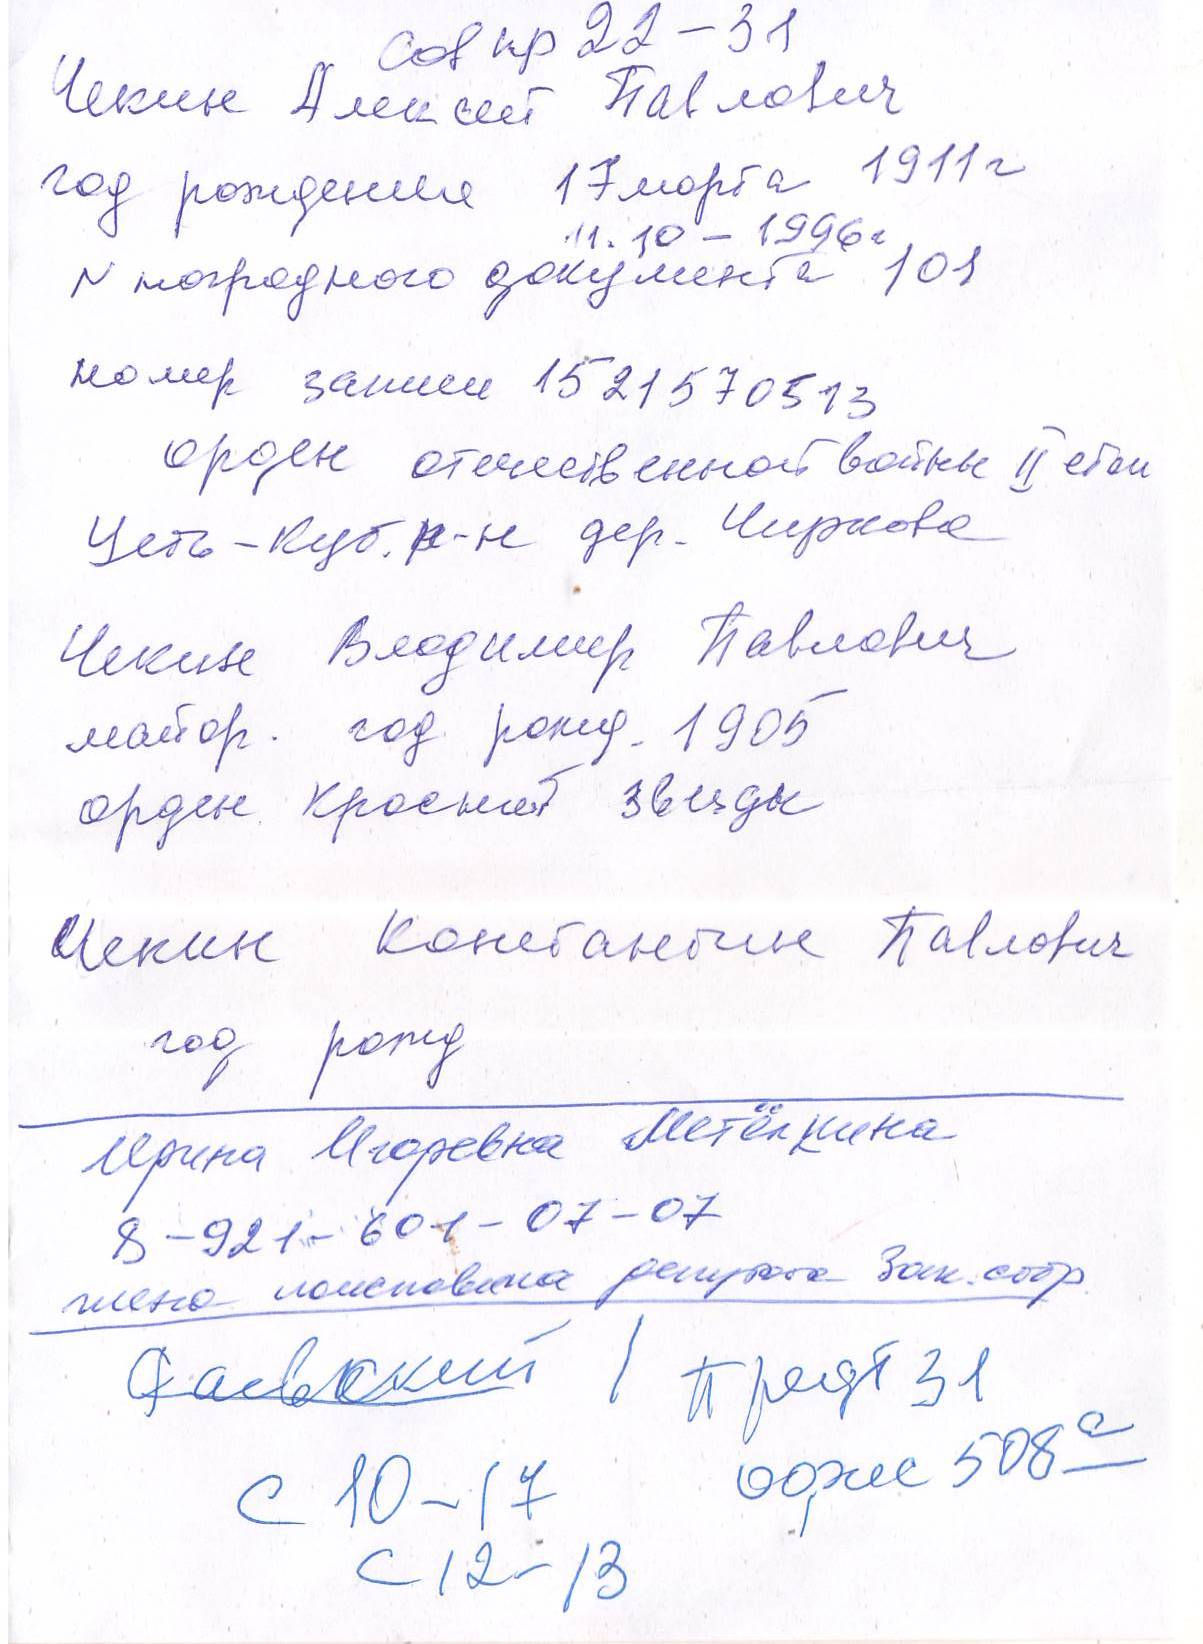 Сов пр 22-31
Чекин Алексей Павлович
год рождения 17 марта 1911 г
11.10 - 1996 г
N наградного документа 101
номер записи 1521570513
орден отечественной войны II степ
Усть-Куб. р-н дер. Чиркова
Чекин Владимир Павлович
майор. год рожд. 1905
орден Красной звезды
Чекин Константин Павлович
год рожд
Ирина Игоревна Метёлкина
8-921-601-07-07
жена поисковика депутата Зак. собр.
/ Предт 31
офис 508а
с 10-17
с 12-13